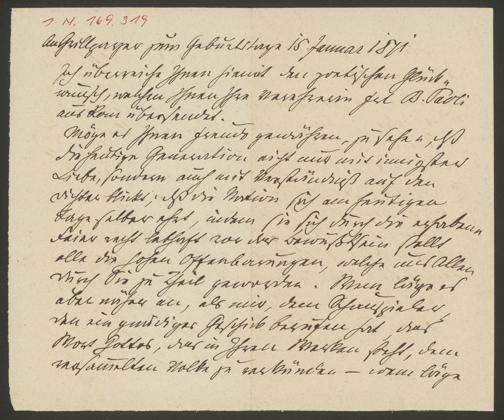 J. N. 169.319
An Grillparzer zum Geburtstage 15 Januar 1871
Ich überreiche Ihnen hiemit den poetischen Glück-
wunsch, welchen Ihnen Ihre Verehrerin Frl. B. Paoli
aus Rom übersendet.
Möge es Ihnen Freude gewähren, zu sehen, daß
die heutige Generation nicht nur mit innigster
Liebe, sondern auch mit Verständniß auf den
Dichter blickt, daß die Nation sich am heutigen
Tage selber ehrt, indem sie sich durch die erhabene
Feier recht lebhaft vor das Bewußtsein stellt
alle die hohen Offenbarungen, welche uns Allen
durch Sie zu Theil geworden. Wem läge es
aber näher an, als mir, dem Schauspieler,
den ein gnädiges Geschick berufen hat, das
Wort Gottes, das in Ihren Werken steht, dem
versammelten Volke zu verkünden – wem läge